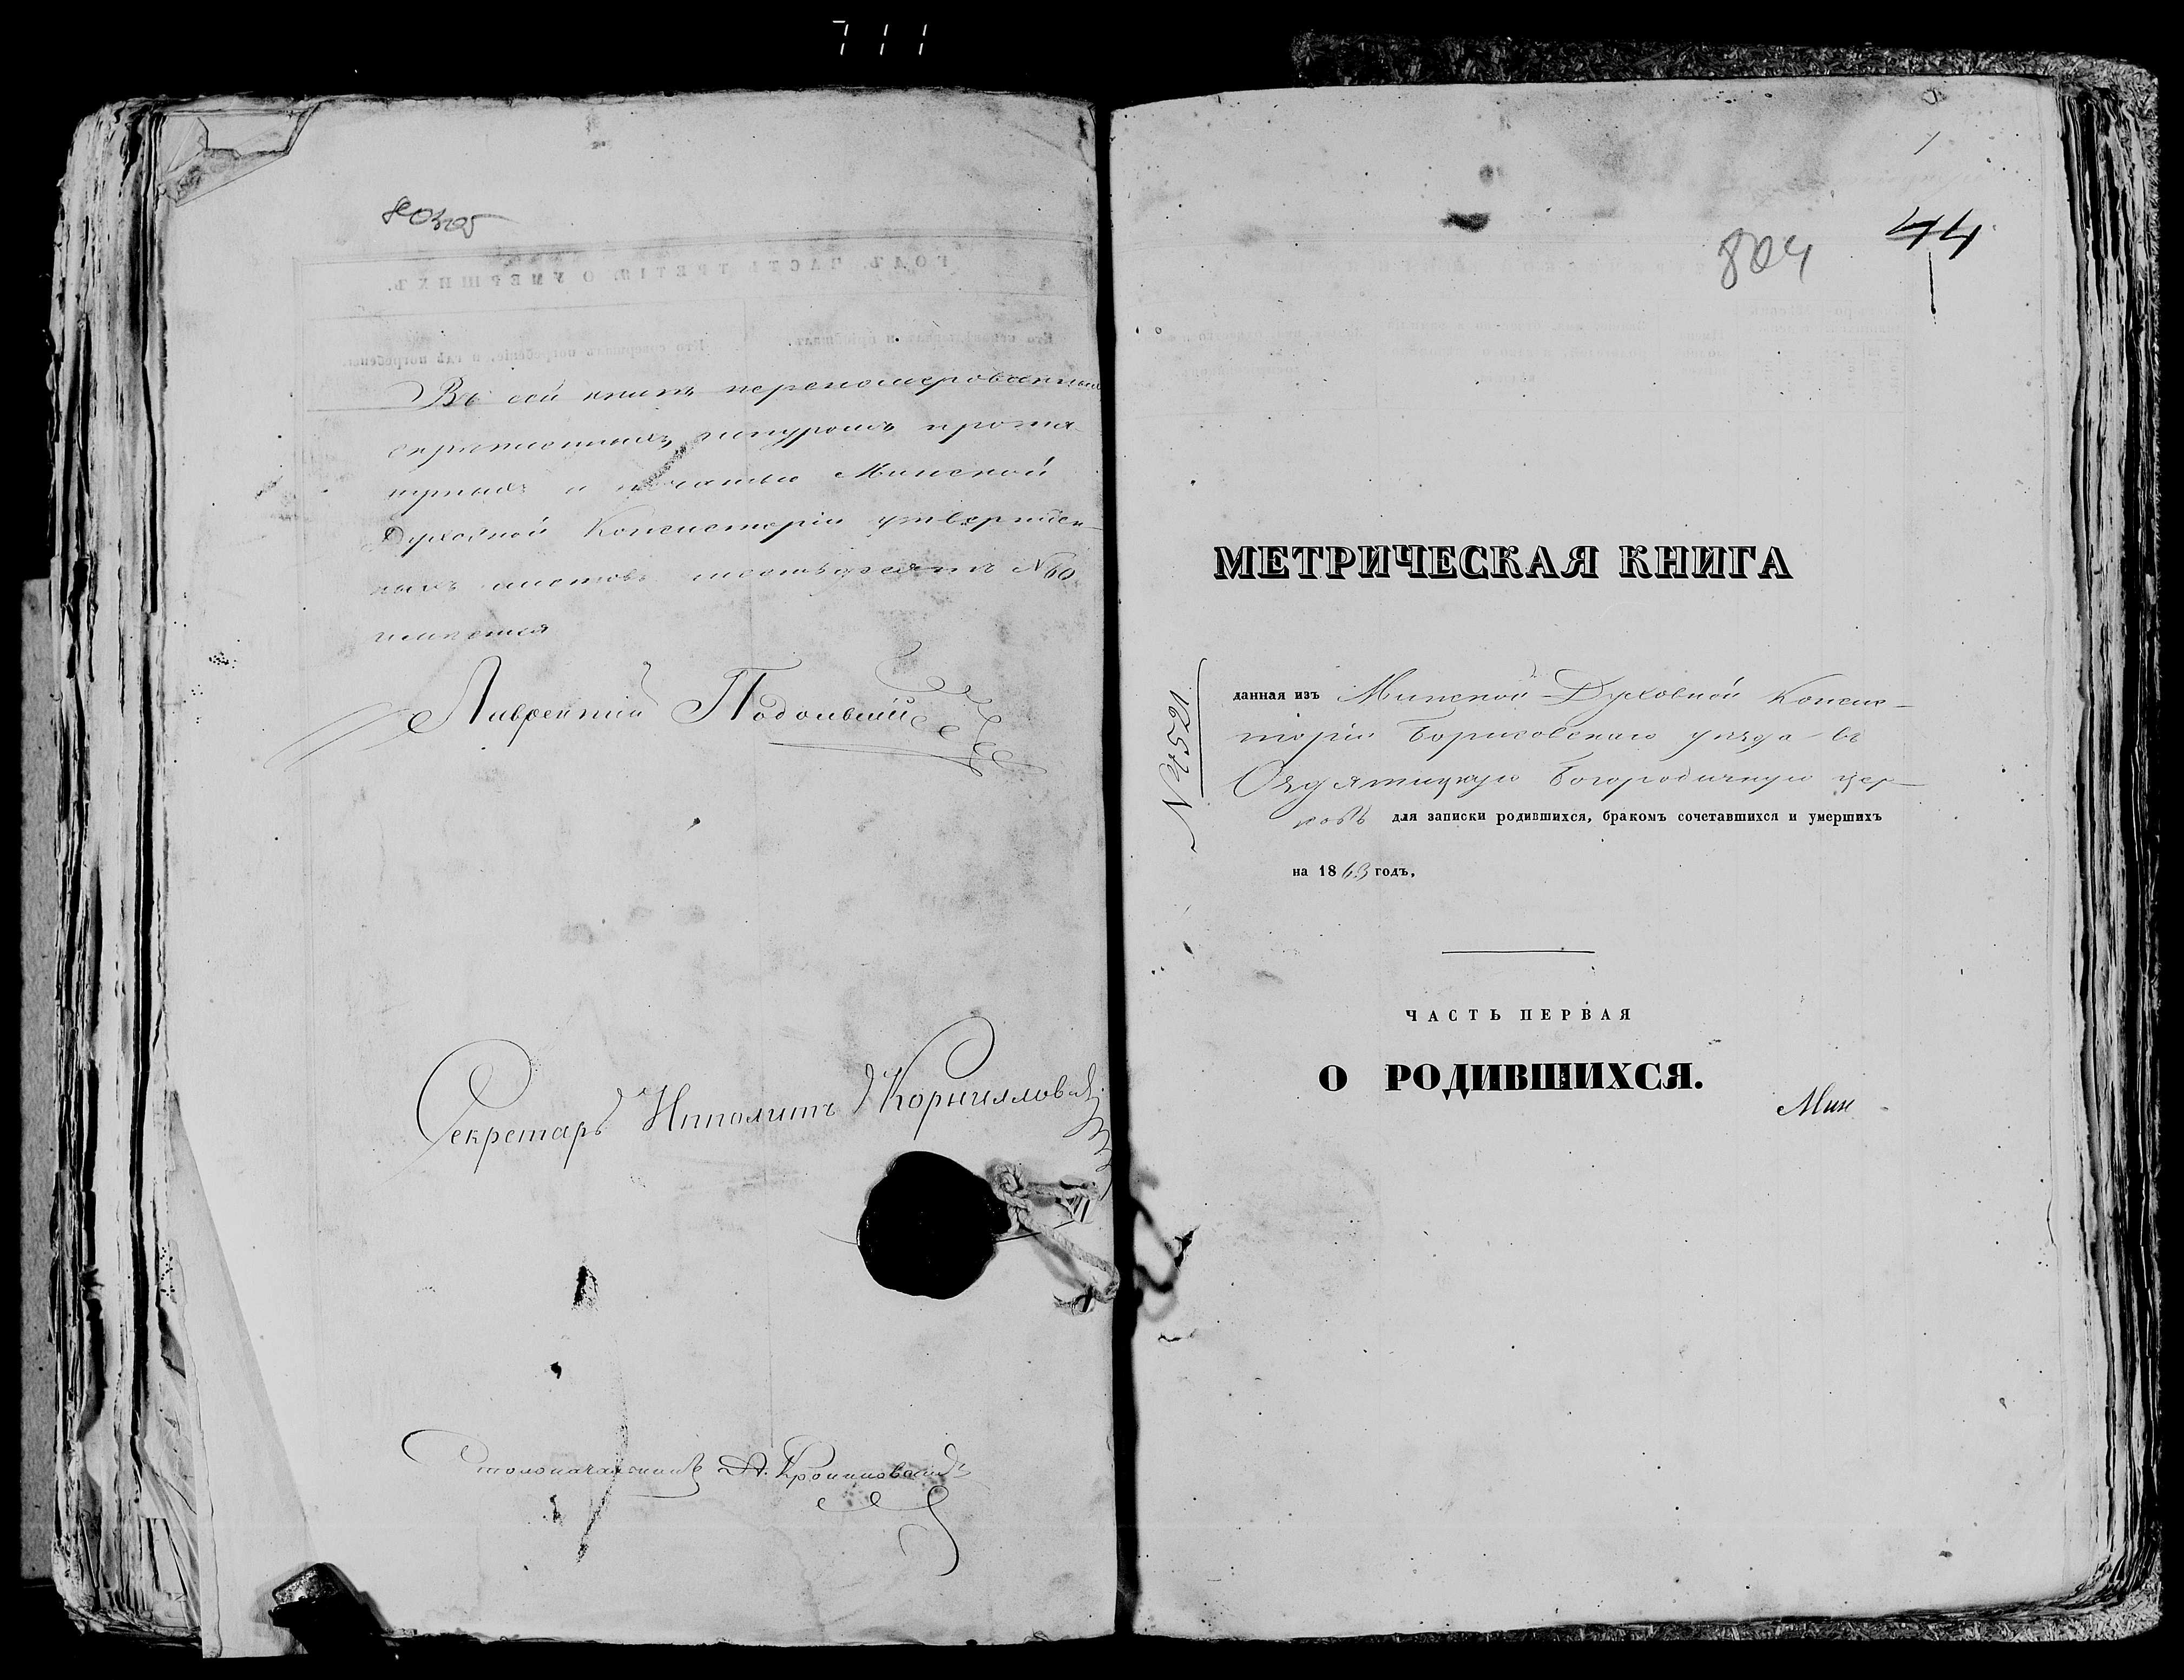 711
803об
Въ сей книгѣ перенумерованныхъ
скрѣпленныхъ, шнуромъ протя-
нутыхъ и печатью Минской
Духовной Консисторіи утвержден-
ныхъ листовъ шестьдесятъ №60
имѣется
Лаврентій
Секретарь Ипполитъ
Столоначальникъ
804
44
1
МЕТРИЧЕСКАЯ КНИГА
№ 1521.
данная изъ Минской Духовной Консис-
торіи Борисовскаго уѣзда въ
Оздятицкую Богородичную цер-
ковь для записки родившихся, бракомъ сочетавшихся и умершихъ
на 1863 годъ,
ЧАСТЬ ПЕРВАЯ
О РОДИВШИХСЯ.
Мин